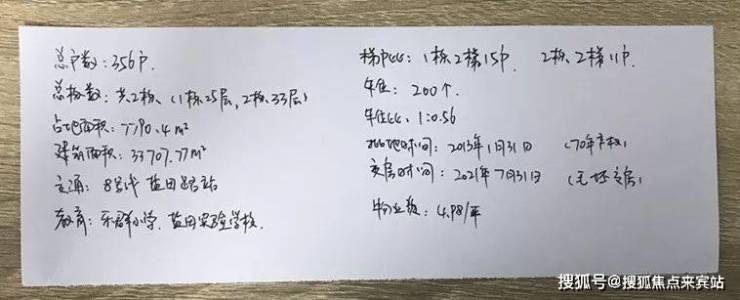 总户数：356户.
总栋数：共2栋、（1栋25层，2栋33层）
占地面积：7790.4m²
建筑面积：33707.77m²
交通：8号线 盐田路站
教育：乐群小学、盐田实验学校.
梯户比：1栋2梯15户 2栋2梯11户
车位：200个.
车位比：1:0.56
拿地时间：2013年1月31日 （70年产权）
交房时间：2021年7月31日 （毛坯交房）
物业费：4.98/平
搜狐号@搜狐焦点来宾站